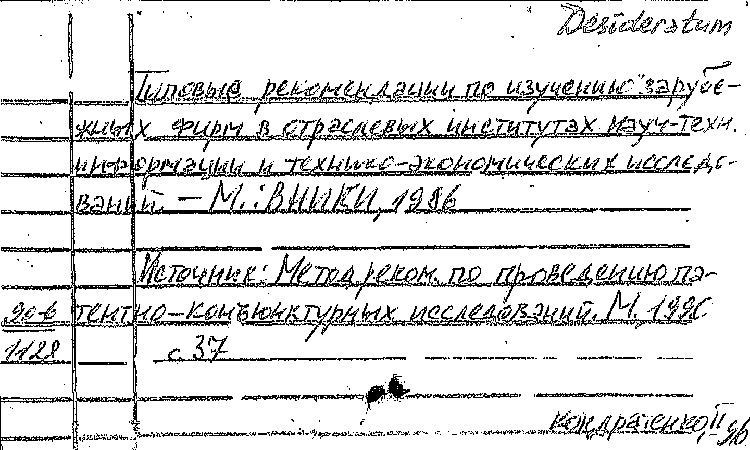 Desideratum
Типовые рекомендации по изучению зарубе-
жных фирм в отраслевых институтах науч-техн.
информации и технико-экономических исследо-
ваний. – М.: ВНИКИ, 1986
Источник: Метод. реком. по проведению па-
90-6 тентно-конъюнктурных исследований. М. 1990
1128 с 37
Кондратенко, II 96